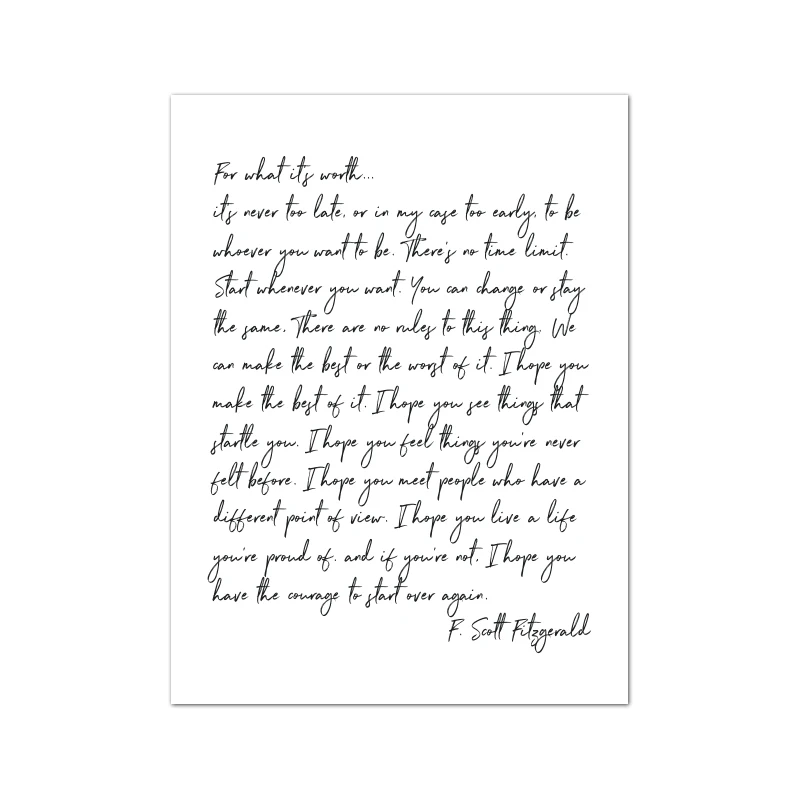 For what it's worth...
it's never too late, or in my case too early, to be
whoever you want to be. There's no time limit.
Start whenever you want. You can change or stay
the same. There are no rules to this thing. We
can make the best or the worst of it. I hope you
make the best of it. I hope you see things that
startle you. I hope you feel things you're never
felt before. I hope you meet people who have a
different point of view. I hope you live a life
you're proud of, and if you're not, I hope you
have the courage to start over again.
F. Scott Fitzgerald